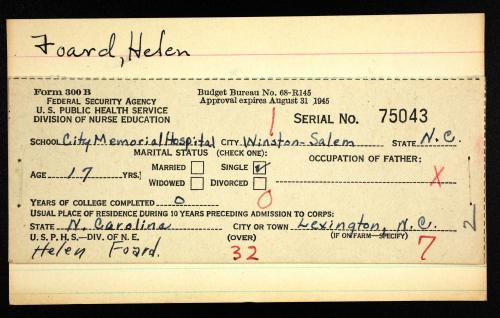 Foard, Helen
Form 300 B
FEDERAL SECURITY AGENCY
U. S. PUBLIC HEALTH SERVICE
DIVISION OF NURSE EDUCATION
Budget Bureau No. 68-R145
Approval expires August 31 1945
1
SERIAL NO. 75043
SCHOOL City Memorial Hospital CITY Winston-Salem STATE N.C.
MARITAL STATUS (CHECK ONE):
OCCUPATION OF FATHER:
AGE 17 YRS. MARRIED SINGLE ✓
X
WIDOWED DIVORCED
YEARS OF COLLEGE COMPLETED 0 0
USUAL PLACE OF RESIDENCE DURING 10 YEARS PRECEDING ADMISSION TO CORPS:
STATE N. Carolina CITY OR TOWN Lexington, N.C.
U. S. P. H. S.—DIV. OF N. E. (OVER) (IF ON FARM—SPECIFY)
Helen Foard. 32 7
2